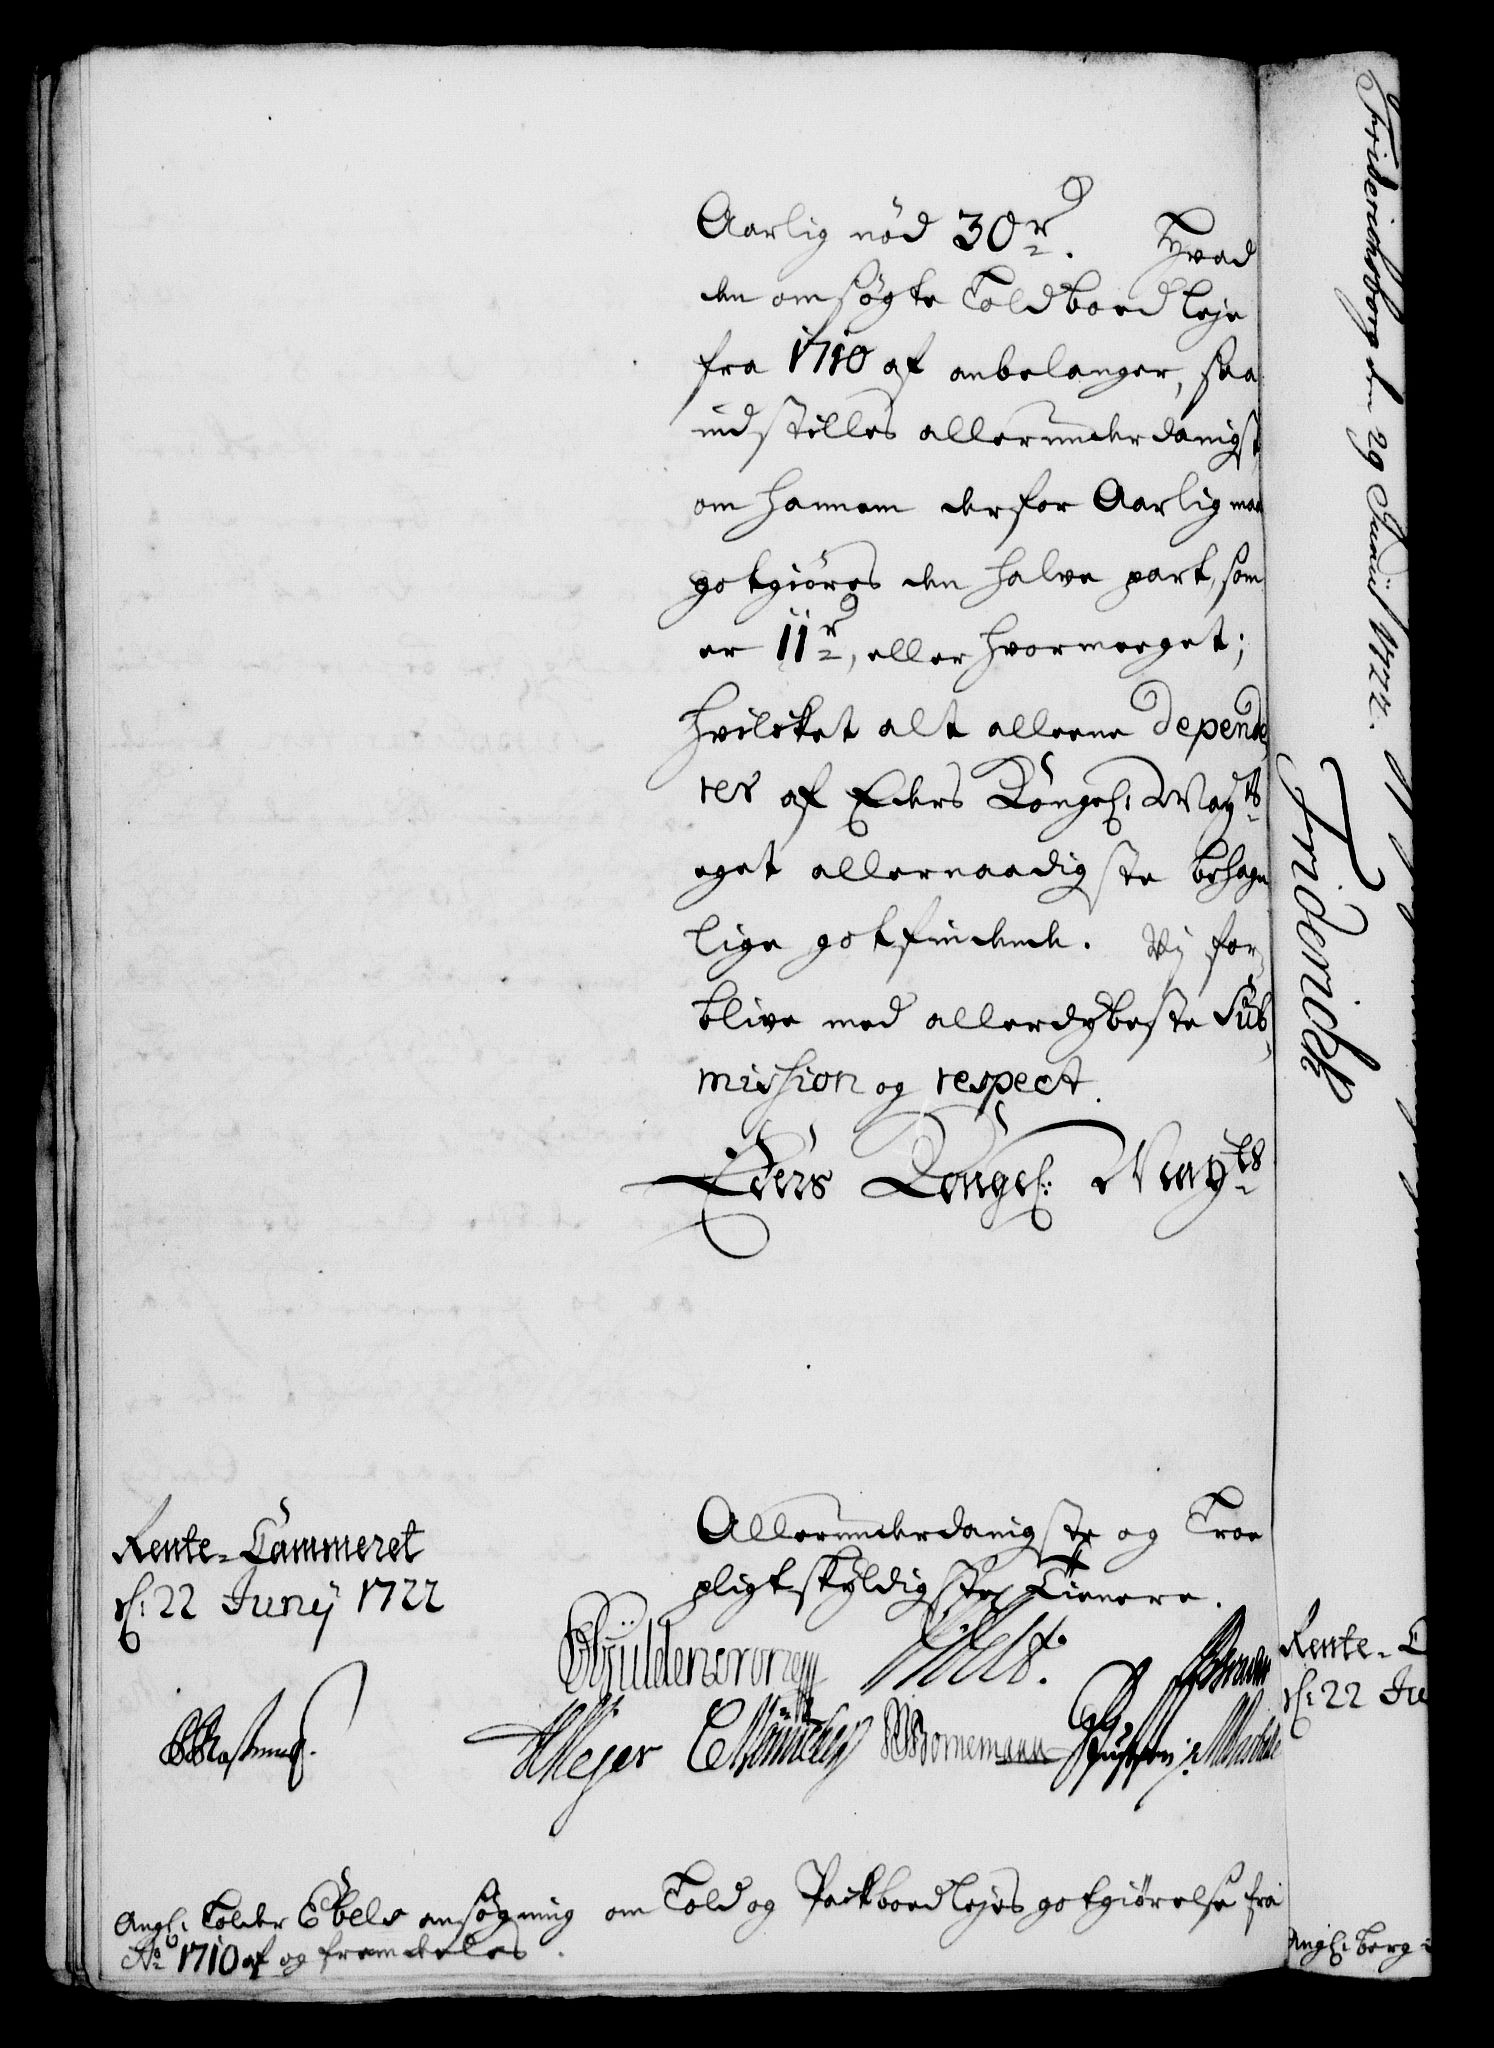 Aarlig nød 30 rd. Hvad
den omsøgte Toldboed leje
fra 1710 af anbelanger, saa
indstilles allerunderdanigst,
om hannem derfor Aarlig maa
gotgiøres den halve part, som
er 11 rd, eller hvormeget;
hvilcket alt alleene depende-
rer af Eders Kongel: May:ts
eget allernaadigste behage-
lige gotfindende. Vj for-
blive med allerdybeste Sub-
mission og respect.
Eders Kongel: May:ts
Allerunderdanigste og Troe
pligtskyldigste Tienere.
Rente-Cammeret
d: 22 Junij 1722
Gyldencrone
Meyer
WBornemann
Angl: Tolder Ebels ansøgning om Told og Packboed lejes gotgiørelse fra
Ao 1710 af og fremdeles.
Friderichsberg den 29 Junii 1722.
Friderich
Rente-C
d: 22 Ju
Angl: berg-